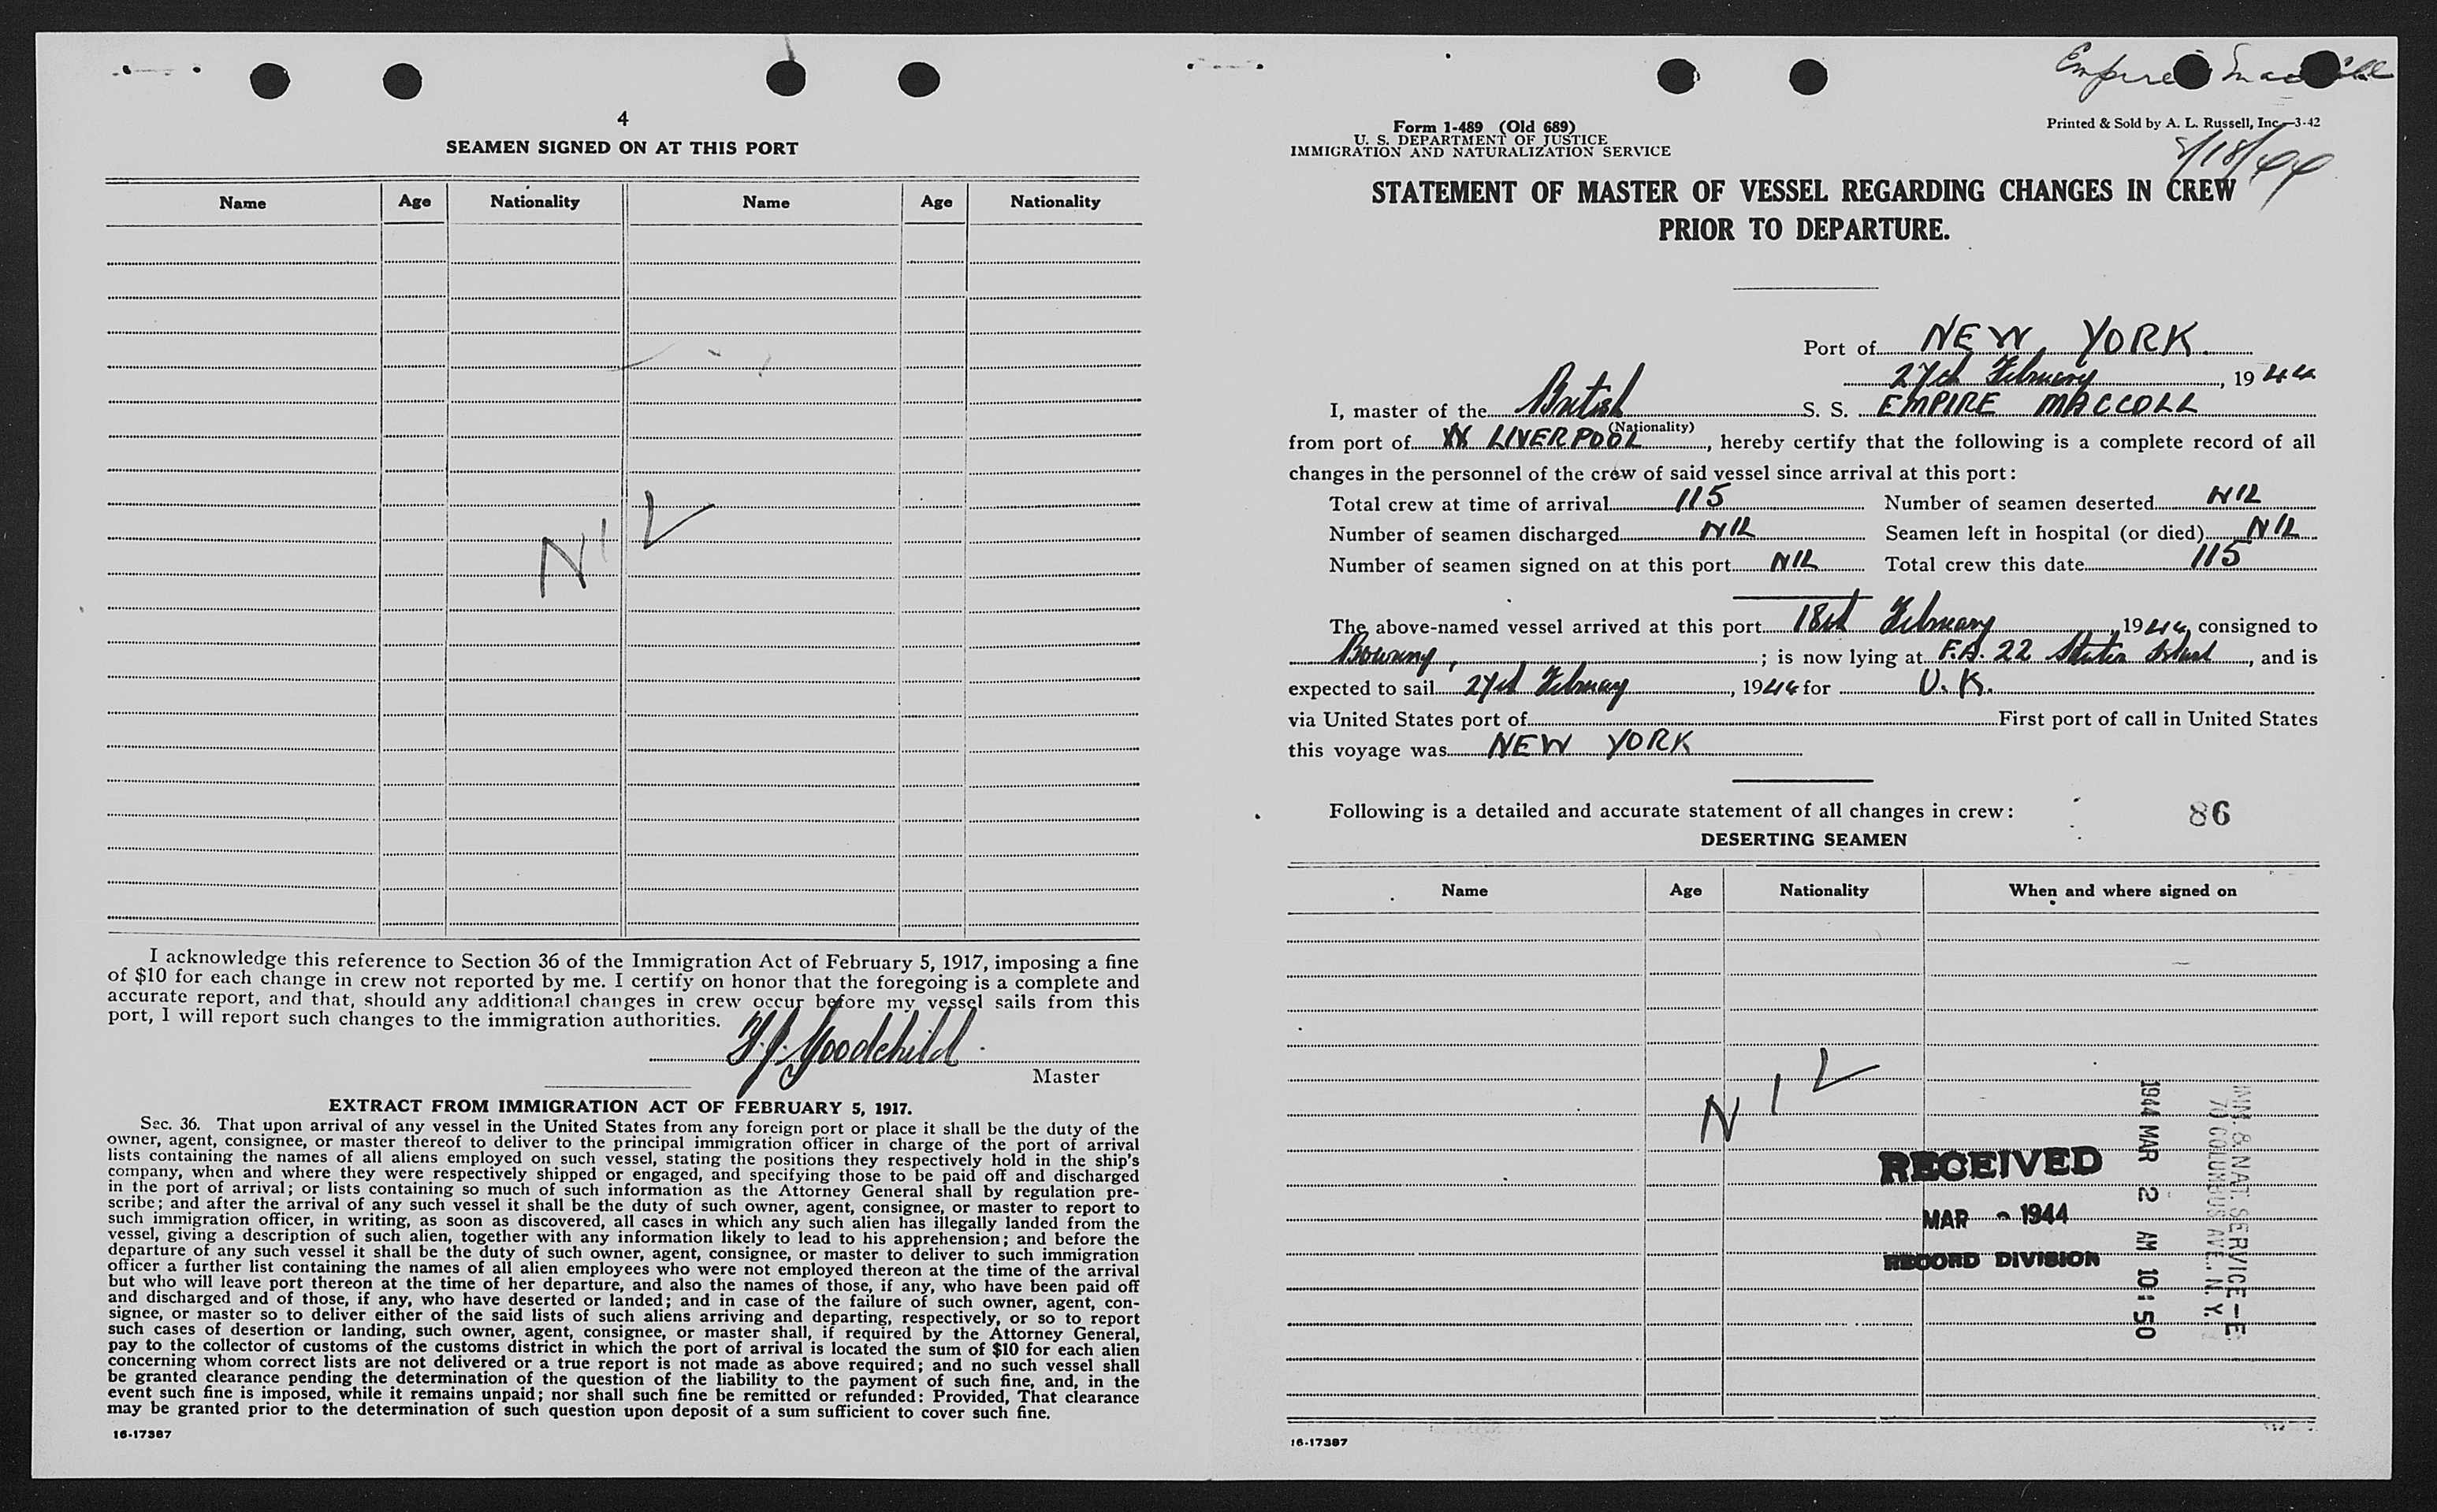 4
SEAMEN SIGNED ON AT THIS PORT
Name Age Nationality Name Age Nationality
NIL
I acknowledge this reference to Section 36 of the Immigration Act of February 5, 1917, imposing a fine
of $10 for each change in crew not reported by me. I certify on honor that the foregoing is a complete and
accurate report, and that, should any additional changes in crew occur before my vessel sails from this
port, I will report such changes to the immigration authorities.
Goodchild
Master
EXTRACT FROM IMMIGRATION ACT OF FEBRUARY 5, 1917.
Sec. 36. That upon arrival of any vessel in the United States from any foreign port or place it shall be the duty of the
owner, agent, consignee, or master thereof to deliver to the principal immigration officer in charge of the port of arrival
lists containing the names of all aliens employed on such vessel, stating the positions they respectively hold in the ship's
company, when and where they were respectively shipped or engaged, and specifying those to be paid off and discharged
in the port of arrival; or lists containing so much of such information as the Attorney General shall by regulation pre-
scribe; and after the arrival of any such vessel it shall be the duty of such owner, agent, consignee, or master to report to
such immigration officer, in writing, as soon as discovered, all cases in which any such alien has illegally landed from the
vessel, giving a description of such alien, together with any information likely to lead to his apprehension; and before the
departure of any such vessel it shall be the duty of such owner, agent, consignee, or master to deliver to such immigration
officer a further list containing the names of all alien employees who were not employed thereon at the time of the arrival
but who will leave port thereon at the time of her departure, and also the names of those, if any, who have been paid off
and discharged and of those, if any, who have deserted or landed; and in case of the failure of such owner, agent, con-
signee, or master so to deliver either of the said lists of such aliens arriving and departing, respectively, or so to report
such cases of desertion or landing, such owner, agent, consignee, or master shall, if required by the Attorney General,
pay to the collector of customs of the customs district in which the port of arrival is located the sum of $10 for each alien
concerning whom correct lists are not delivered or a true report is not made as above required; and no such vessel shall
be granted clearance pending the determination of the question of the liability to the payment of such fine, and, in the
event such fine is imposed, while it remains unpaid; nor shall such fine be remitted or refunded: Provided, That clearance
may be granted prior to the determination of such question upon deposit of a sum sufficient to cover such fine.
16-17387
Empire
Form 1-489 (Old 689)
U. S. DEPARTMENT OF JUSTICE
IMMIGRATION AND NATURALIZATION SERVICE
Printed & Sold by A. L. Russell, Inc.—3-42
2/18/44
STATEMENT OF MASTER OF VESSEL REGARDING CHANGES IN CREW
PRIOR TO DEPARTURE.
Port of NEW YORK
27th February, 1944
I, master of the British S. S. EMPIRE MACCOLL
(Nationality)
from port of LIVERPOOL, hereby certify that the following is a complete record of all
changes in the personnel of the crew of said vessel since arrival at this port:
Total crew at time of arrival 115 Number of seamen deserted NIL
Number of seamen discharged NIL Seamen left in hospital (or died) NIL
Number of seamen signed on at this port NIL Total crew this date 115
The above-named vessel arrived at this port 18th February 1944, consigned to
; is now lying at F.A. 22 Staten Island, and is
expected to sail 27th February, 1944 for U.K.
via United States port of First port of call in United States
this voyage was NEW YORK
Following is a detailed and accurate statement of all changes in crew:
86
DESERTING SEAMEN
Name Age Nationality When and where signed on
NIL
RECEIVED
MAR - 1944
RECORD DIVISION
1944 MAR 2 AM 10:50
IMM. & NAT. SERVICE—E
70 COLUMBUS AVE., N. Y.
16-17387